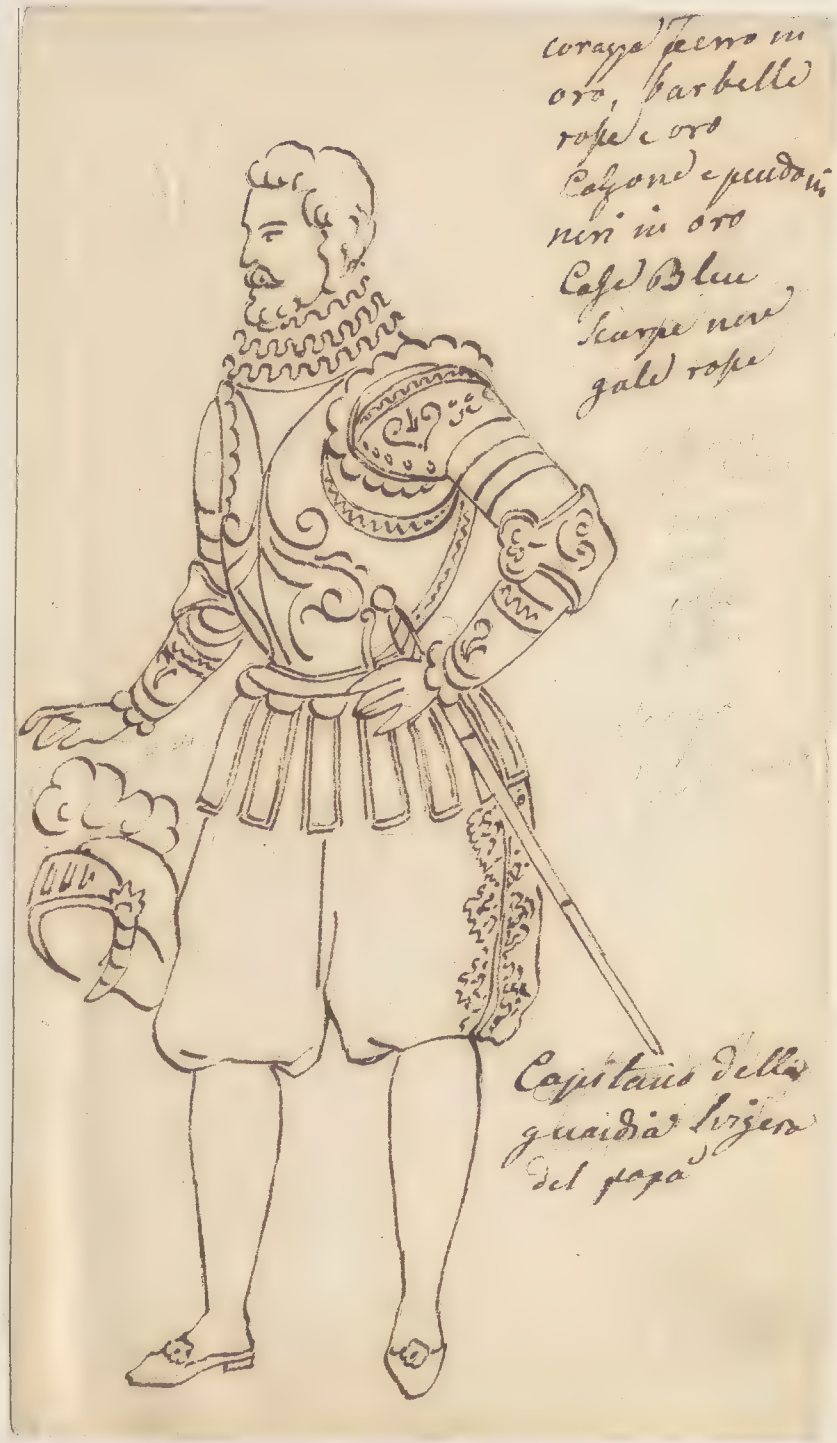 corazza ferro in
oro, barbelle
rosse e oro
Calzone e pendoni
neri in oro
Calze Bleu
scarpe nere
gale rosse
Capitano della
guardia svizera
del papa